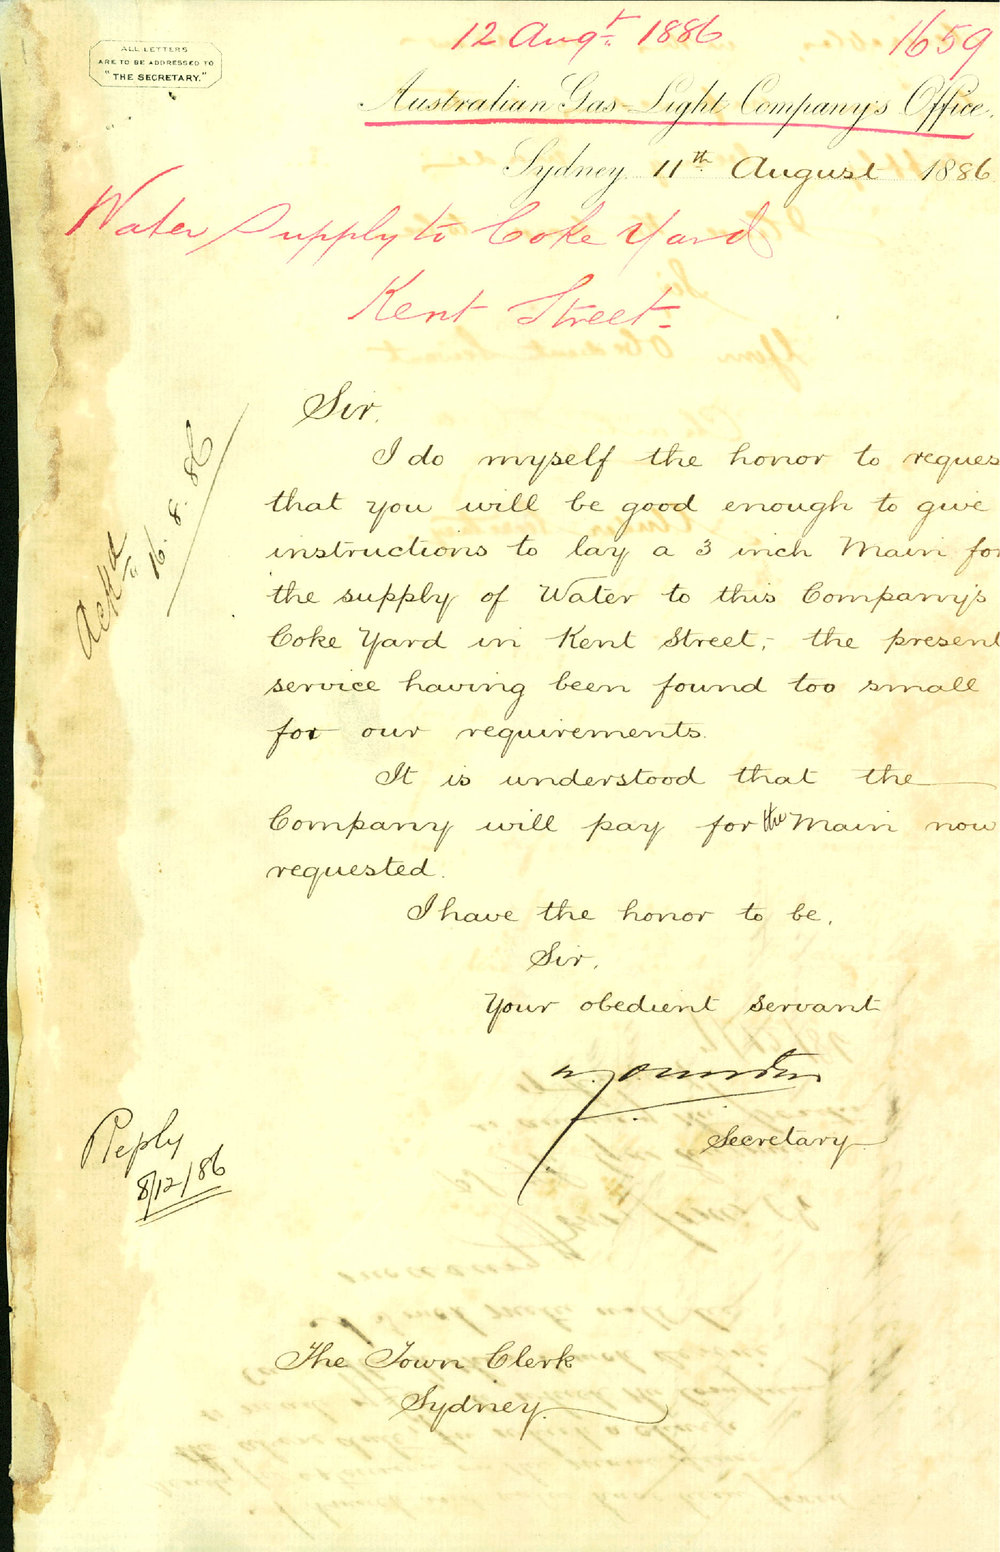 12 Augt. 1886 1659
ALL LETTERS
ARE TO BE ADDRESSED TO
"THE SECRETARY."
Australian Gas-Light Company's Office.
Sydney 11th August 1886
Water Supply to Coke Yard
Kent Street-
Ackd
16.8.86
Sir,
I do myself the honor to reques
that you will be good enough to give
instructions to lay a 3 inch Main for
the supply of Water to this Company's
Coke Yard in Kent Street,- the present
service having been found too small
for our requirements.
It is understood that the
Company will pay for the Main now
requested.
I have the honor to be,
Sir,
Your obedient servant
Secretary
Reply
8/12/86
The Town Clerk
Sydney.